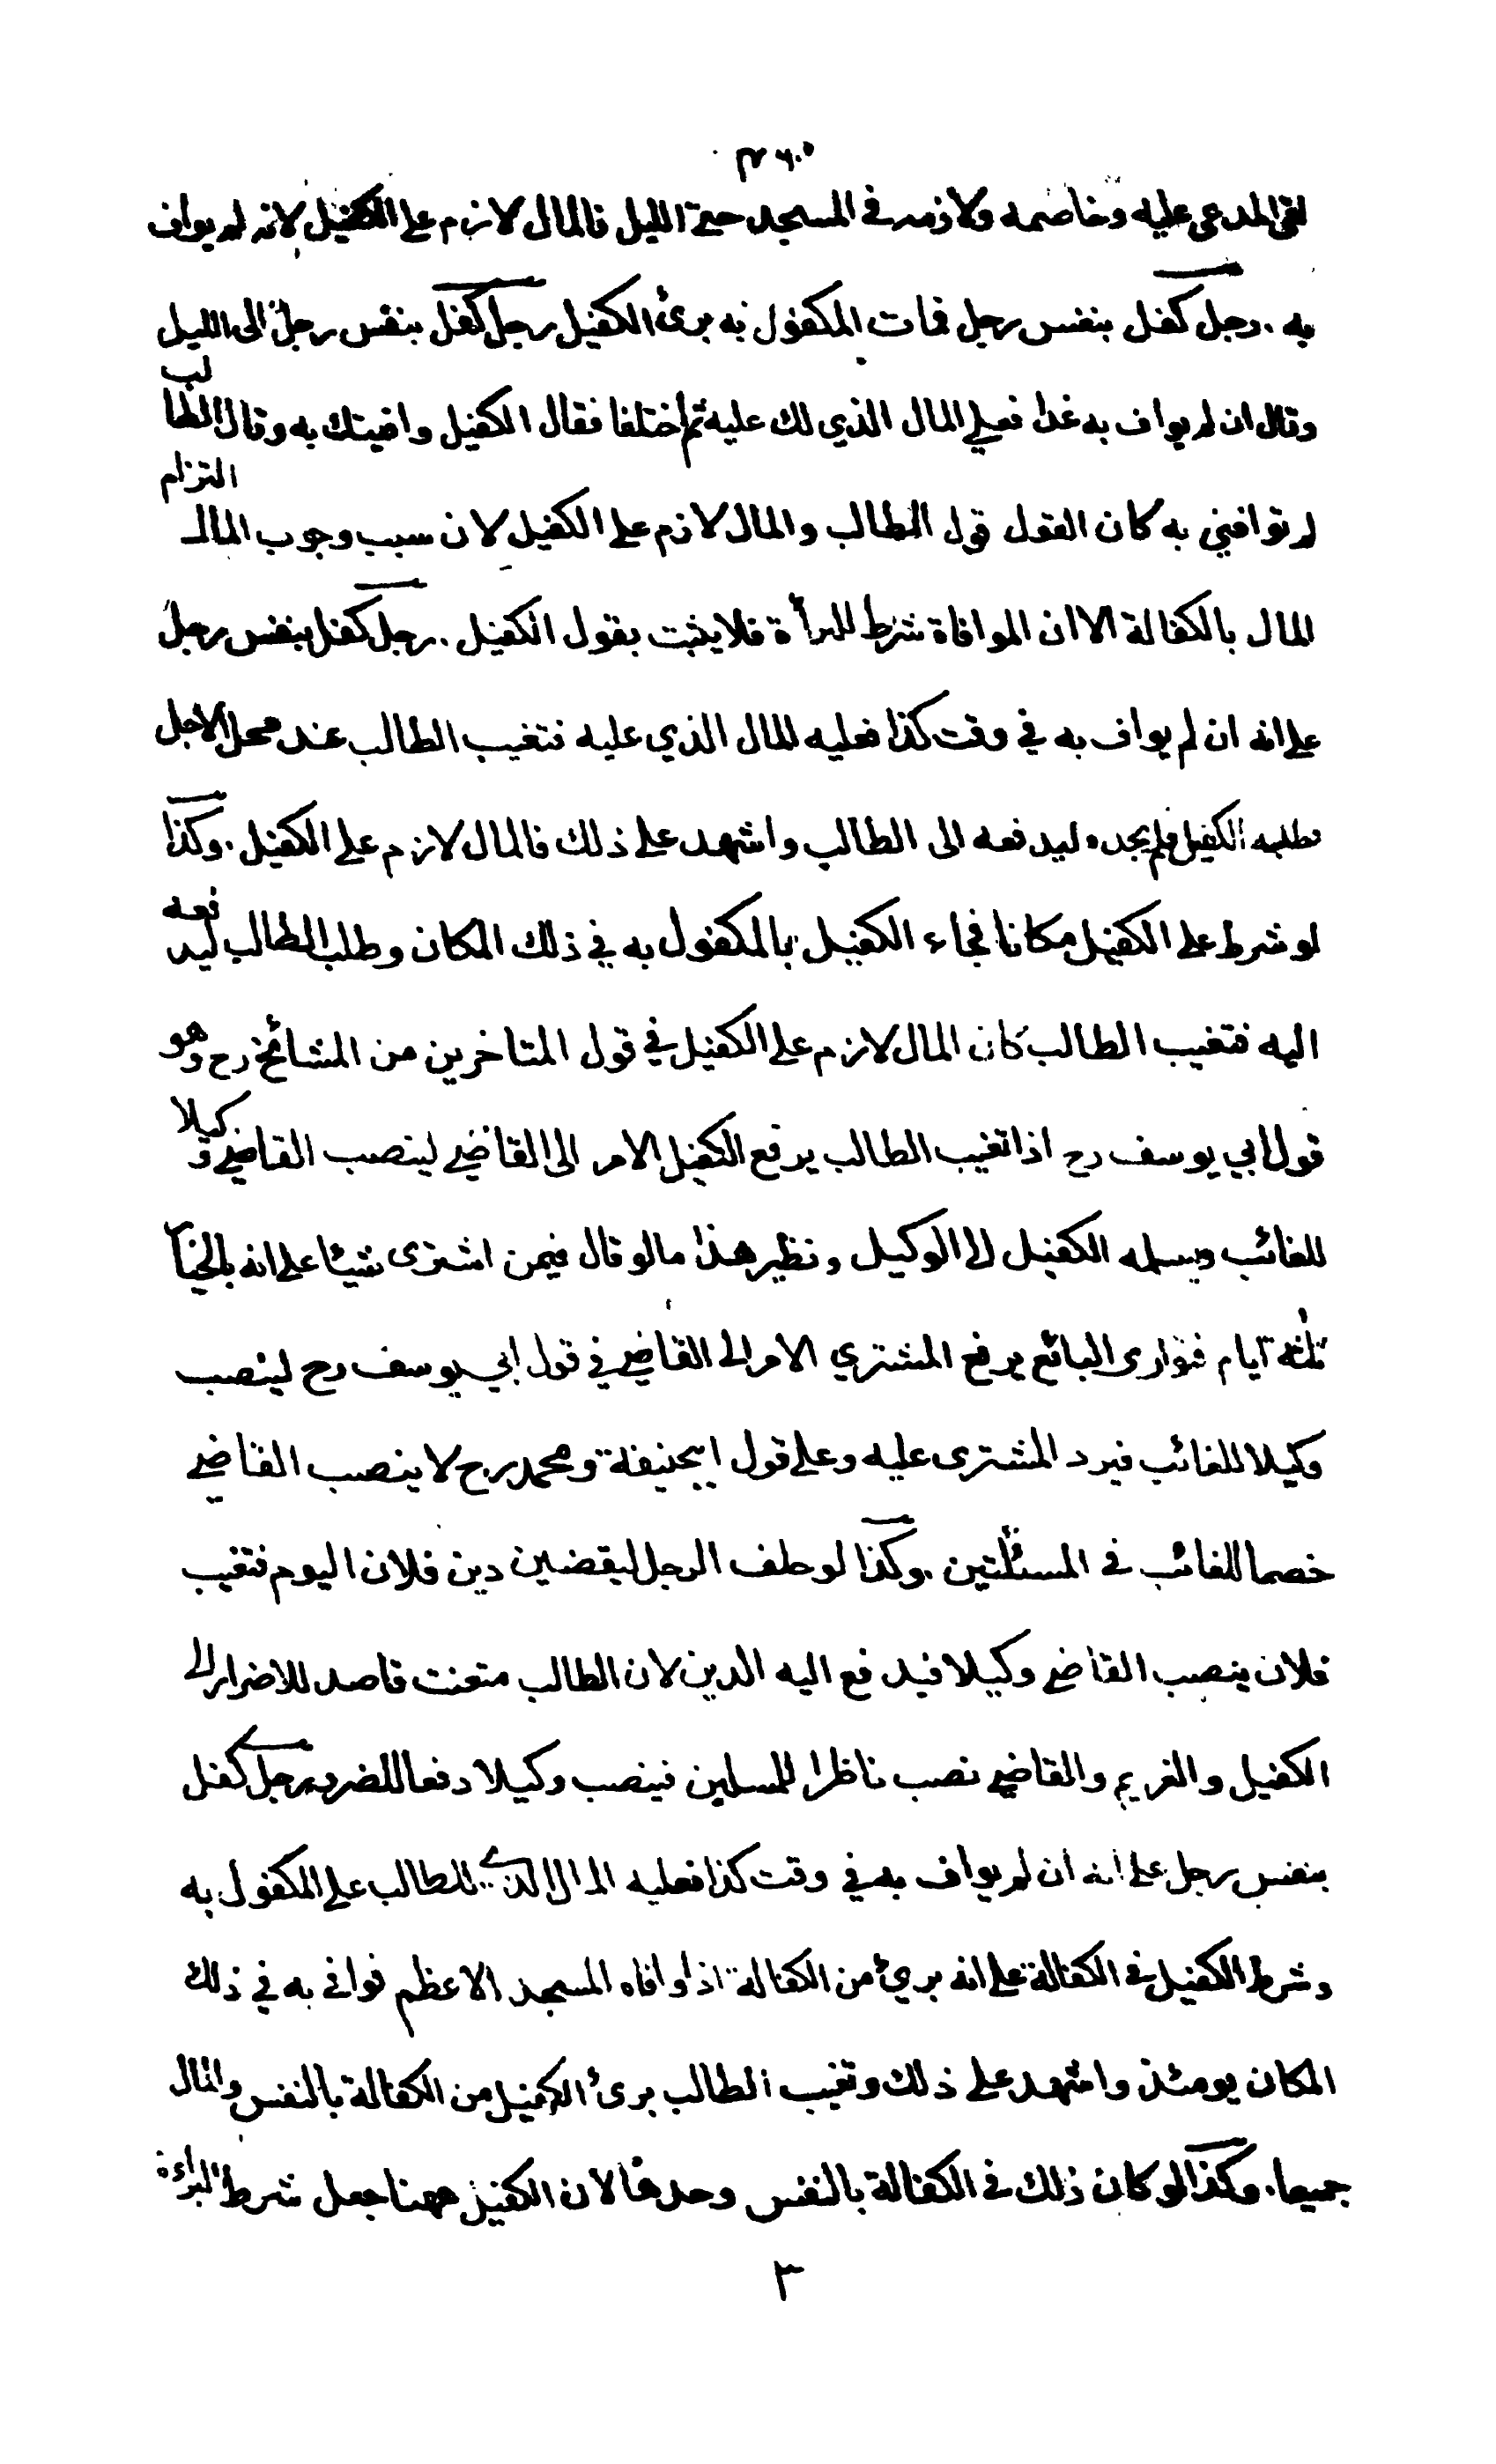 لقى المدعى عليه وخاصمه ولازمه في المسجد حتى الليل فالمال لازم على الكفيل لانه لم يواف
به . رجل كفل بنفس رجل فمات المكفول به برئ الكفيل رجل كفل بنفس رجل الى الليل
وقال ان لم يواف به غدا فعلي المال الذي لك عليه ثم اختلفا فقال الكفيل وافيتك به وقال الطالب
لم توافيني به كان القول قول الطالب والمال لازم على الكفيل لان سبب وجوب المال التزام
المال بالكفالة الا ان الموافاة شرط للبرأة فلا يثبت بقول الكفيل . رجل كفل بنفس رجل
على انه ان لم يواف به في وقت كذا فعليه المال الذي عليه فتغيب الطالب عند محل الاجل
فطلبه الكفيل فلم يجده ليدفعه الى الطالب واشهد على ذلك فالمال لازم على الكفيل . وكذا
لو شرط على الكفيل مكانا فجاء الكفيل بالمكفول به في ذلك المكان وطلب الطالب ليدفعه
اليه فتغيب الطالب كان المال لازم على الكفيل في قول المتاخرين من المشائخ رح وهو
قول ابي يوسف رح اذا تغيب الطالب يرفع الكفيل الامر الى القاضي لينصب القاضي وكيلا
للغائب ويسلمه الكفيل الى الوكيل ونظير هذا ما لو قال فيمن اشترى شيئا على انه بالخيار
ثلثة ايام فتوارى البائع يرفع المشتري الامر الى القاضي في قول ابي يوسف رح لينصب
وكيلا للغائب فيرد المشترى عليه وعلى قول ابيحنيفة ومحمد رح لا ينصب القاضي
خصما للغائب في المسئلتين . وكذا لو حلف الرجل ليقضين دين فلان اليوم فتغيب
فلان ينصب القاضي وكيلا فيدفع اليه الدين لان الطالب متعنت قاصد للاضرار الى
الكفيل والغريم والقاضي نصب ناظرا للمسلمين فينصب وكيلا دفعا للضرر رجل كفل
بنفس رجل على انه ان لم يواف به في وقت كذا فعليه المال الذي للطالب على المكفول به
وشرط الكفيل في الكفالة على انه بريئ من الكفالة اذا وافاه المسجد الاعظم فوافى به في ذلك
المكان يومئذ واشهد على ذلك وتغيب الطالب برئ الكفيل من الكفالة بالنفس والمال
جميعا . وكذا لو كان ذلك في الكفالة بالنفس وحدها لان الكفيل ههنا جعل شرط البراءة
٣